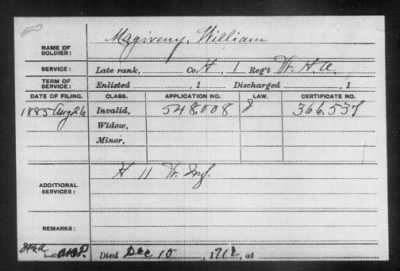 NAME OF SOLDIER: Magiveny, William
SERVICE: Late rank, Co. H, 1 Reg't Vt. H.A.
TERM OF SERVICE: Enlisted , 1 Discharged , 1
DATE OF FILING. CLASS. APPLICATION NO. LAW. CERTIFICATE NO.
1885 Aug 26 Invalid, 548.008 366.537
Widow,
Minor,
ADDITIONAL SERVICES: H 11 Vt. Inf.
REMARKS:
Died Dec 15, 1912, at